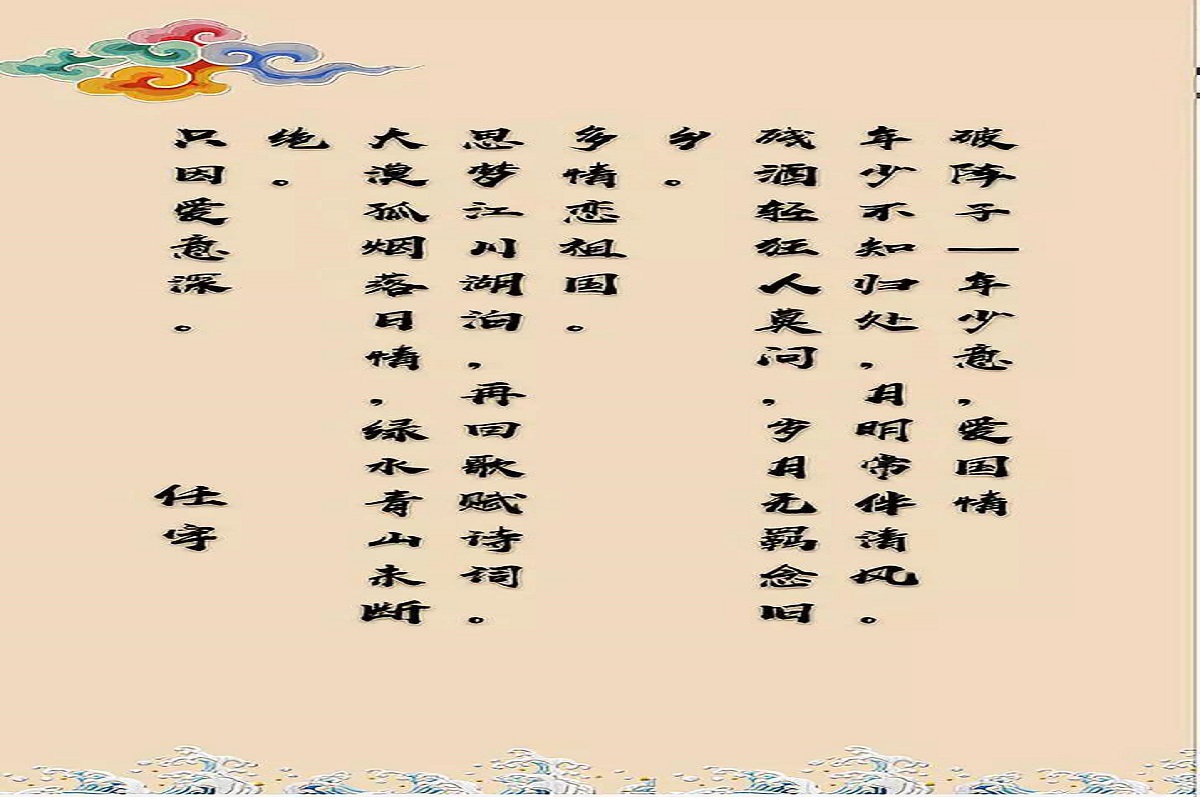 破阵子—年少意,爱国情
年少不知归处,月明常伴清风。
残酒轻狂人莫问,岁月无羁念旧
乡。
多情恋祖国。
思梦江川湖泊,再回歌赋诗词。
大漠孤烟落日情,绿水青山未断
绝。
只因爱意深。
任宇